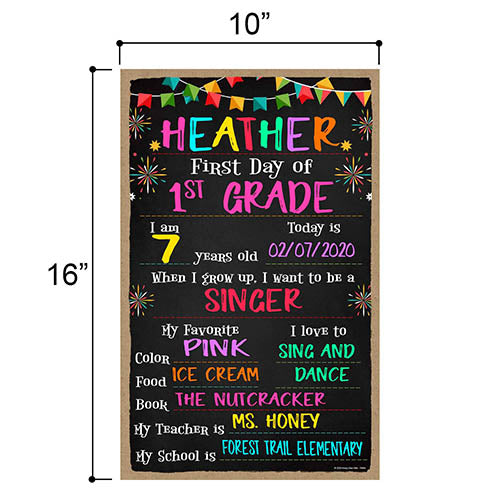 10”
16”
HEATHER
First Day of
1ST GRADE
I am
7 years old
Today is
02/07/2020
When I grow up, I want to be a
SINGER
My Favorite
Color PINK
Food ICE CREAM
I love to
SING AND
DANCE
Book THE NUTCRACKER
My Teacher is MS. HONEY
My School is FOREST TRAIL ELEMENTARY